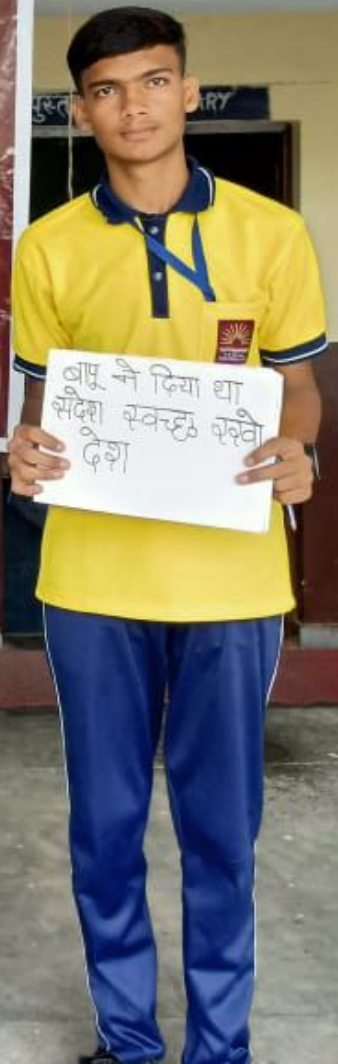 पुस्त
ARY
बापू ने दिया था
संदेश स्वच्छ रखो
देश